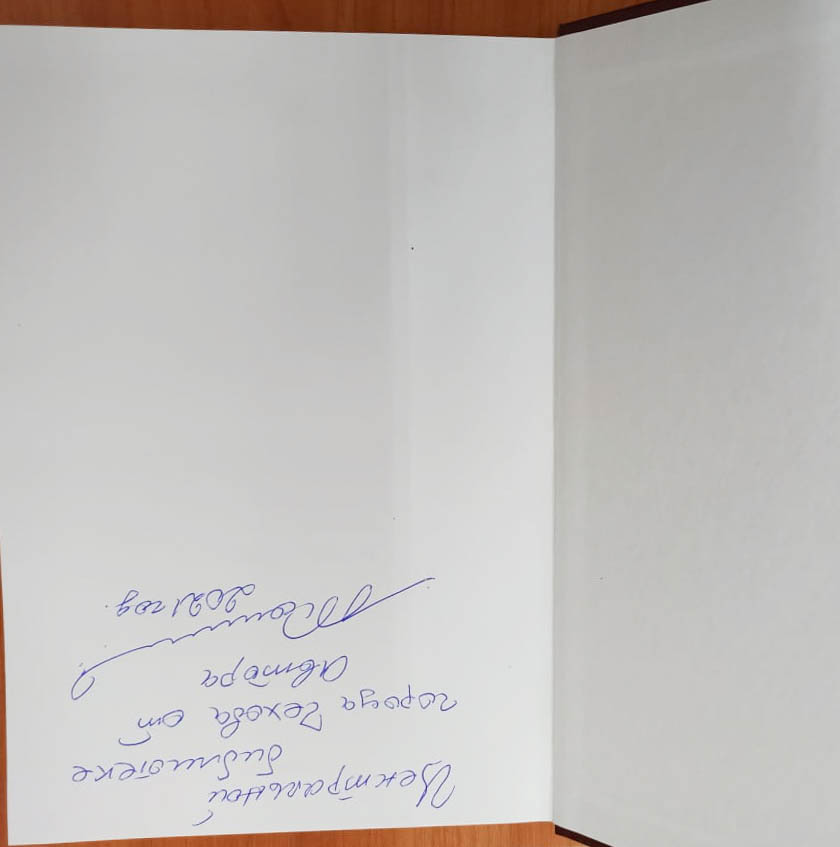 Центральной
библиотеке
города Чехова от
Автора
2021 год.